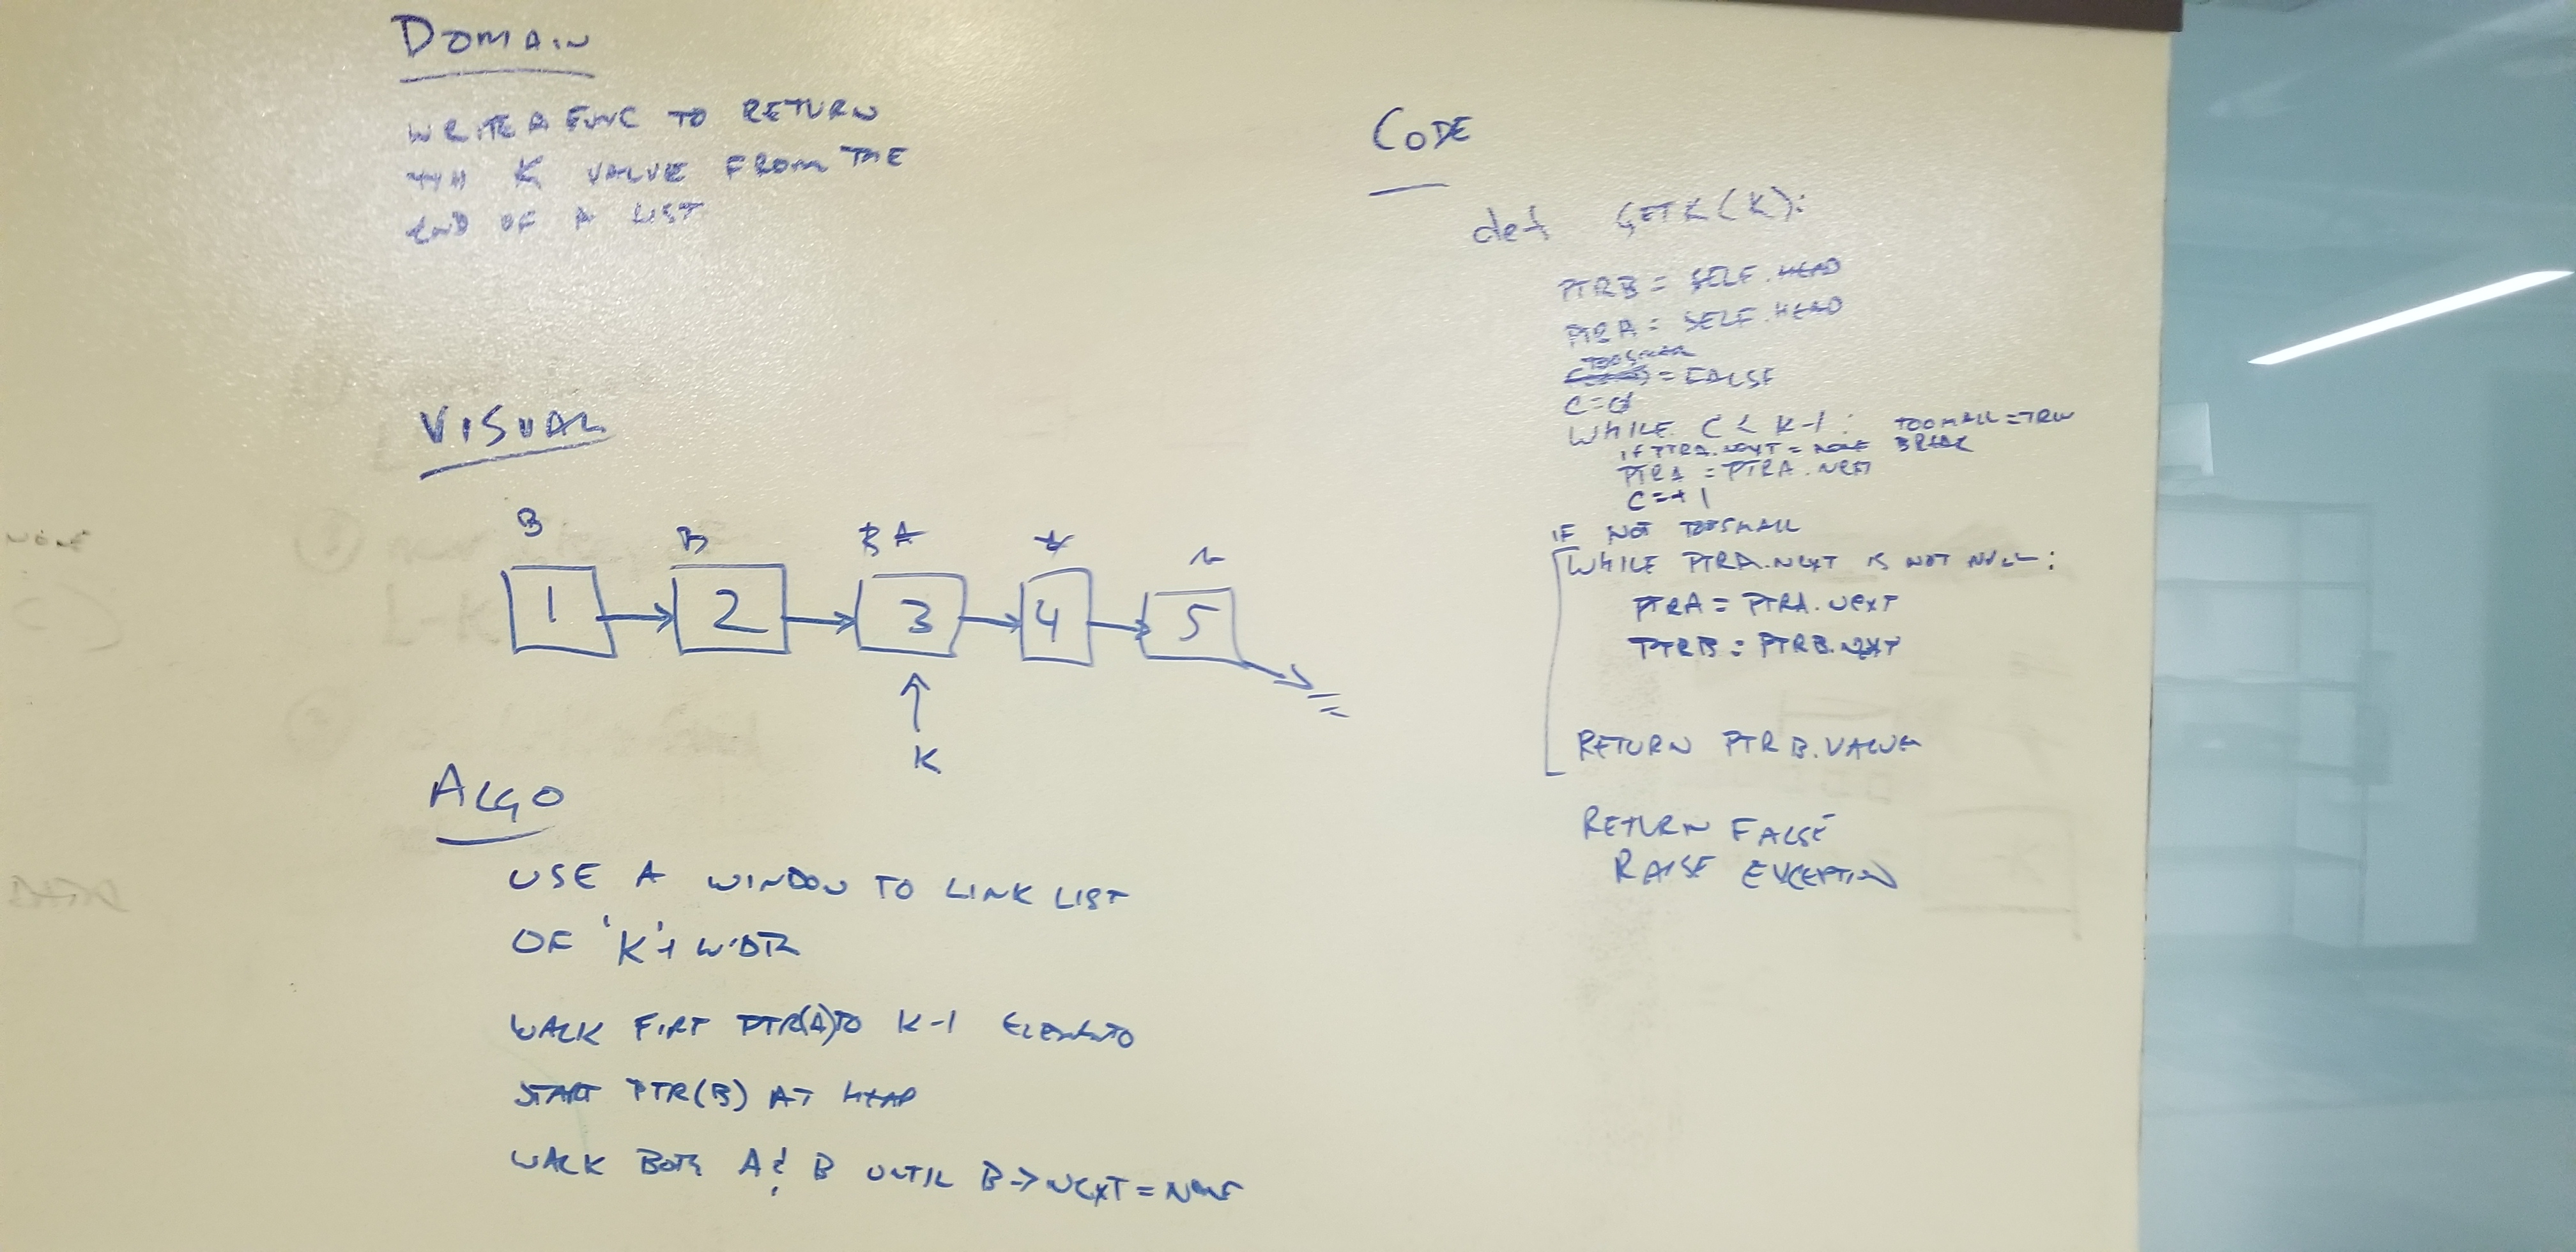 DOMAIN
WRITE A FUNC TO RETURN
K VALUE FROM THE
END OF A LIST
VISUAL
B B B A
1 2 3 4 5
K
ALGO
USE A WINDOW TO LINK LIST
OF 'K'-1 WIDTH
WALK FIRT PTR(A)TO K-1 ELEMENTS
START PTR(B) AT HEAD
WALK BOTH A & B UNTIL B->NEXT = NONE
CODE
def GETK(K):
PTRB = SELF.HEAD
PTRA = SELF.HEAD
TOOSMALL
= FALSE
C=0
WHILE C < K-1: TOOMALL=TRU
if PTRA.NEXT = NONE BREAK
PTRA = PTRA.NEXT
C=+1
IF NOT TOOSMALL
WHILE PTRA.NEXT IS NOT NULL:
PTRA = PTRA.NEXT
PTRB = PTRB.NEXT
RETURN PTRB.VALUE
RETURN FALSE
RAISE EXCEPTION
NONE
L-K